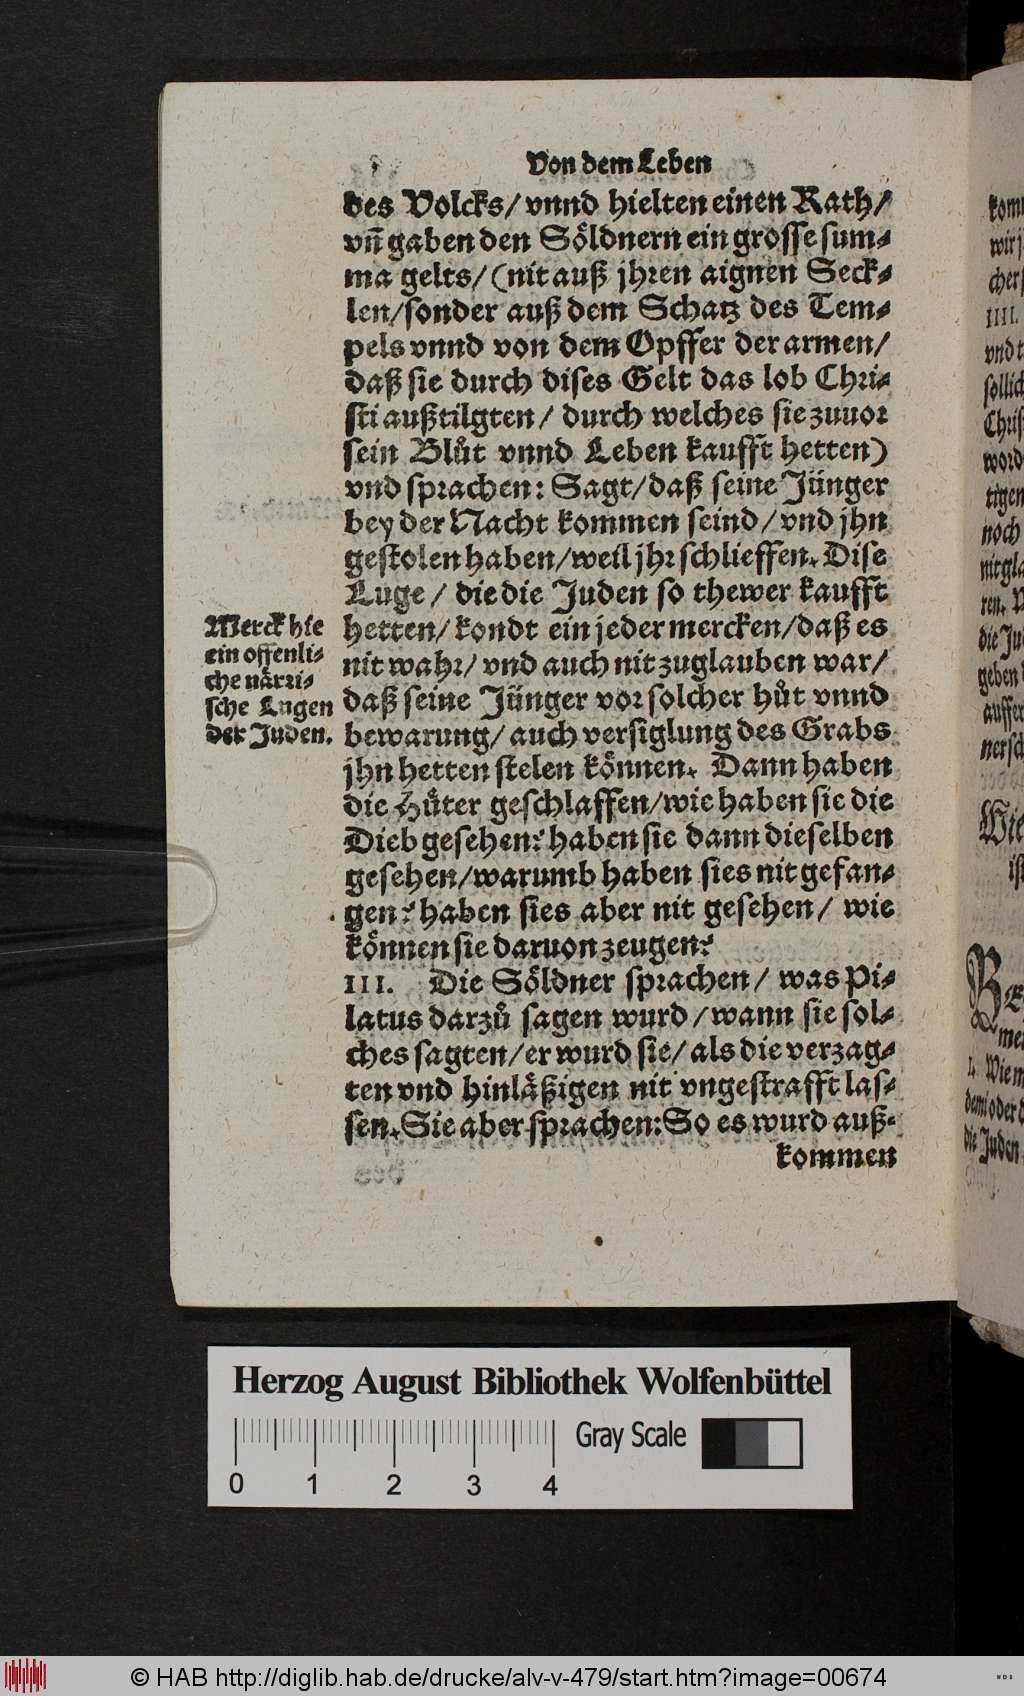 Von dem Leben
des Volcks/ vnnd hielten einen Rath/
vñ gaben den Söldnern ein grosse sum-
ma gelts/ (nit auß jhren aignen Seck-
len/sonder auß dem Schatz des Tem-
pels vnnd von dem Opffer der armen/
daß sie durch dises Gelt das lob Chri-
sti außtilgten/ durch welches sie zuuor
sein Blůt vnnd Leben kaufft hetten)
vnd sprachen: Sagt/daß seine Jünger
bey der Nacht kommen seind/vnd jhn
gestolen haben/weil jhr schlieffen. Dise
Luge/ die die Juden so thewer kaufft
hetten/ kondt ein jeder mercken/daß es
nit wahr/ vnd auch nit zuglauben war/
daß seine Jünger vor solcher hůt vnnd
bewarung/ auch versiglung des Grabs
jhn hetten stelen können. Dann haben
die Hüter geschlaffen/wie haben sie die
Dieb gesehen? haben sie dann dieselben
gesehen/warumb haben sies nit gefan-
gen? haben sies aber nit gesehen/ wie
können sie daruon zeugen?
III. Die Söldner sprachen/ was Pi-
latus darzů sagen wurd/wann sie sol-
ches sagten/er wurd sie/als die verzag-
ten vnd hinläßigen nit vngestrafft las-
sen. Sie aber sprachen: So es wurd auß-
kommen
Merck hie
ein offenli-
che närri-
sche Lugen
der Juden.
Herzog August Bibliothek Wolfenbüttel
Gray Scale
0 1 2 3 4
© HAB http://diglib.hab.de/drucke/alv-v-479/start.htm?image=00674